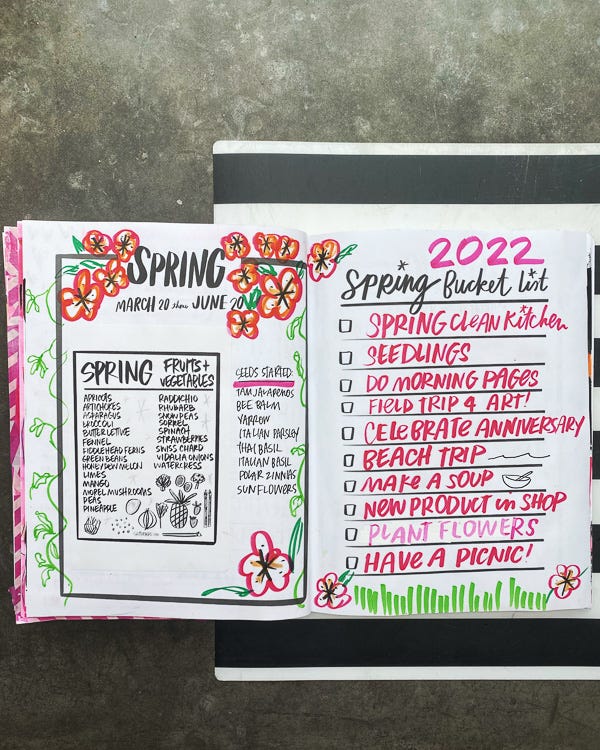 SPRING
MARCH 20 thru JUNE 20
SPRING FRUITS + VEGETABLES
APRICOTS
ARTICHOKES
ASPARAGUS
BROCCOLI
BUTTER LETTUCE
FENNEL
FIDDLEHEAD FERNS
GREEN BEANS
HONEYDEW MELON
LIMES
MANGO
MOREL MUSHROOMS
PEAS
PINEAPPLE
RADICCHIO
RHUBARB
SNOW PEAS
SORREL
SPINACH
STRAWBERRIES
SWISS CHARD
VIDALIA ONIONS
WATERCRESS
SEEDS STARTED:
BEE BALM
YARROW
ITALIAN PARSLEY
THAI BASIL
ITALIAN BASIL
POLAR ZINNIAS
SUNFLOWERS
2022
Spring Bucket list
SPRING Clean Kitchen
SEEDLINGS
DO MORNING PAGES
FIELD TRIP 4 ART!
CELEBRATE ANNIVERSARY
BEACH TRIP
MAKE A SOUP
NEW PRODUCT in SHOP
PLANT FLOWERS
HAVE A PICNIC!